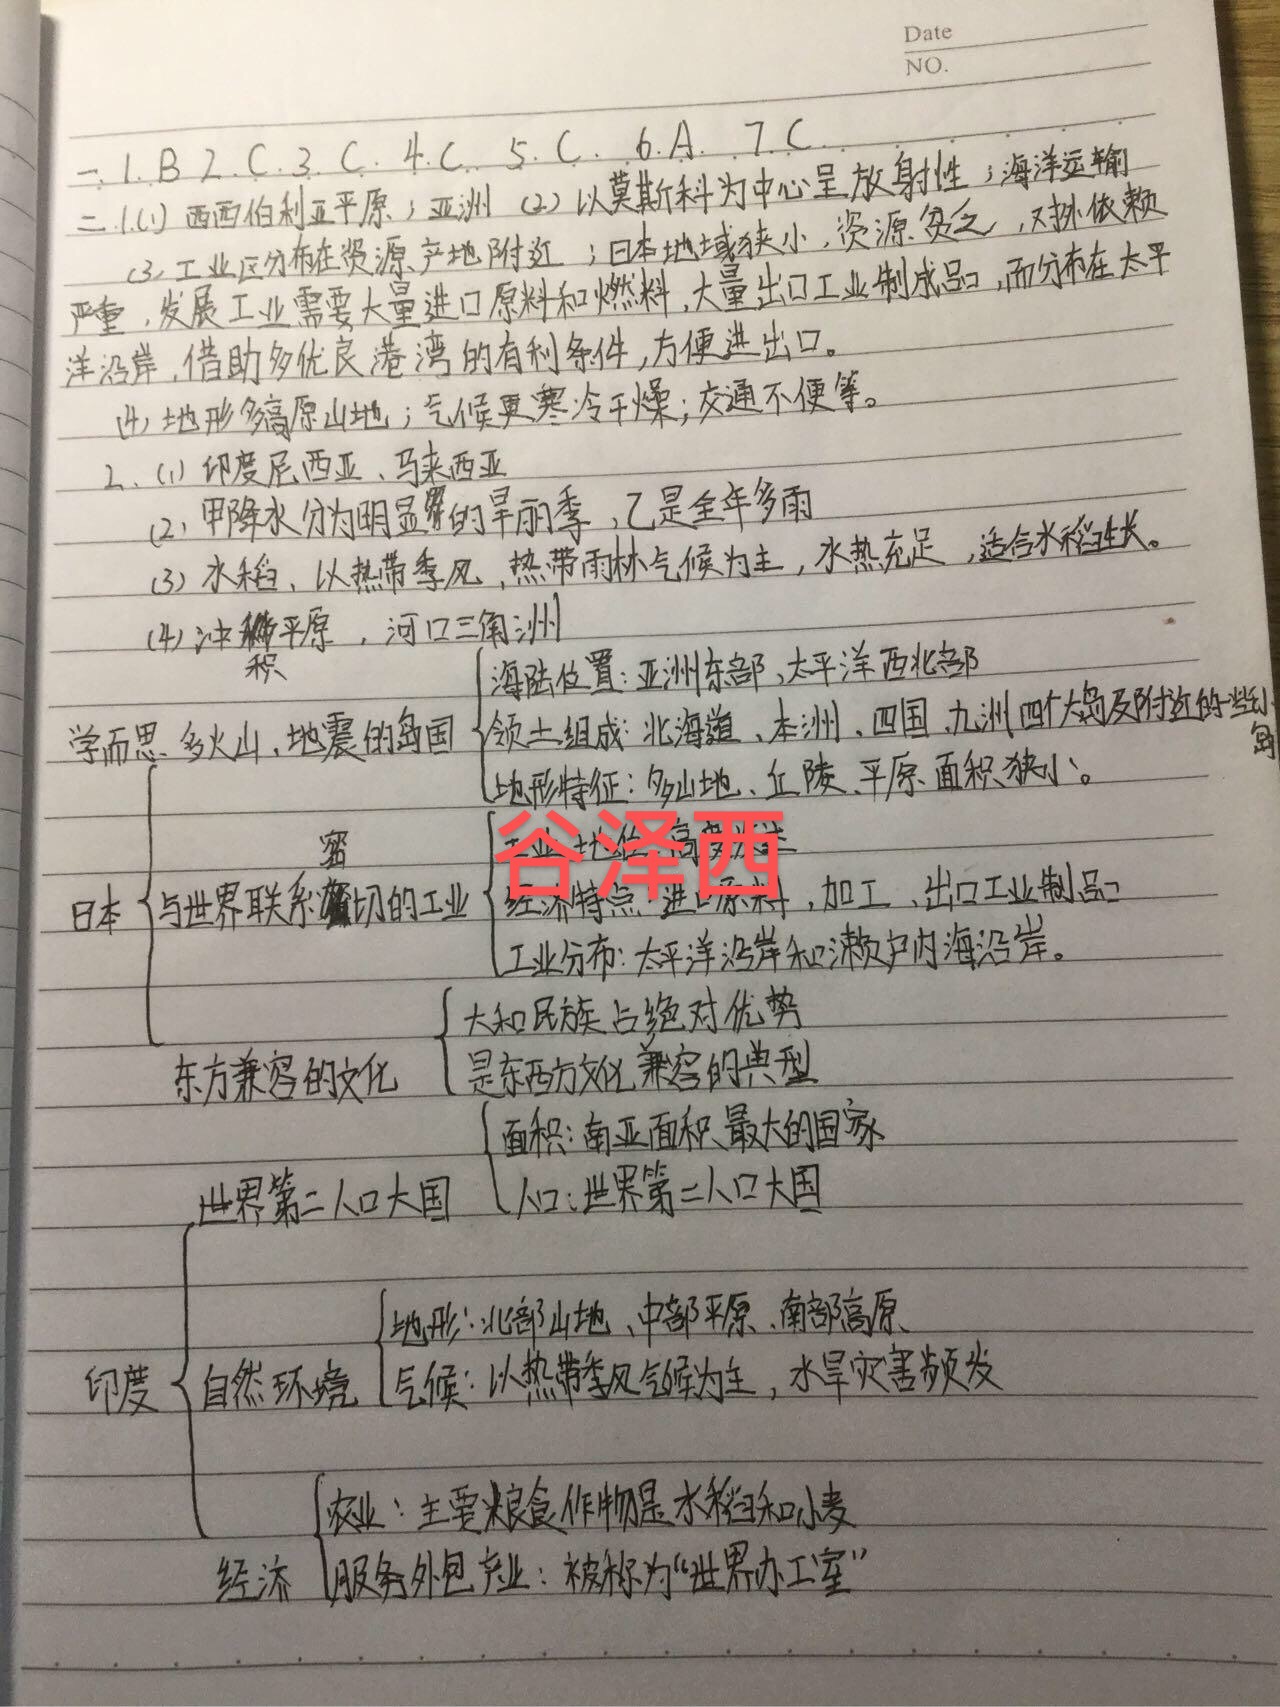 Date
NO.
一.1.B 2.C.3.C.4.C.5.C.6.A.7.C.
二.1.(1)西西伯利亚平原；亚洲 (2)以莫斯科为中心呈放射性；海洋运输
(3)工业区分布在资源产地附近；日本地域狭小，资源贫乏，对外依赖
严重，发展工业需要大量进口原料和燃料，大量出口工业制成品，而分布在太平
洋沿岸，借助多优良港湾的有利条件，方便进出口。
(4)地形多高原山地；气候更寒冷干燥；交通不便等。
2.(1)印度尼西亚、马来西亚
(2)甲降水分为明显的旱雨季，乙是全年多雨
(3)水稻、以热带季风、热带雨林气候为主，水热充足，适合水稻生长。
(4)冲积平原，河口三角洲
海陆位置：亚洲东部、太平洋西北部
学而思 多火山、地震的岛国 领土组成：北海道、本洲、四国、九洲四个大岛及附近的一些小岛
地形特征：多山地、丘陵、平原面积狭小。
谷泽西
日本 与世界联系密切的工业 经济特点：进口原料，加工、出口工业制品
工业分布：太平洋沿岸和濑户内海沿岸。
大和民族占绝对优势
东方兼容的文化 是东西方文化兼容的典型
面积：南亚面积最大的国家
世界第二人口大国 人口：世界第二人口大国
地形：北部山地、中部平原、南部高原
印度 自然环境 气候：以热带季风气候为主，水旱灾害频发
农业：主要粮食作物是水稻和小麦
经济 服务外包产业：被称为“世界办工室”